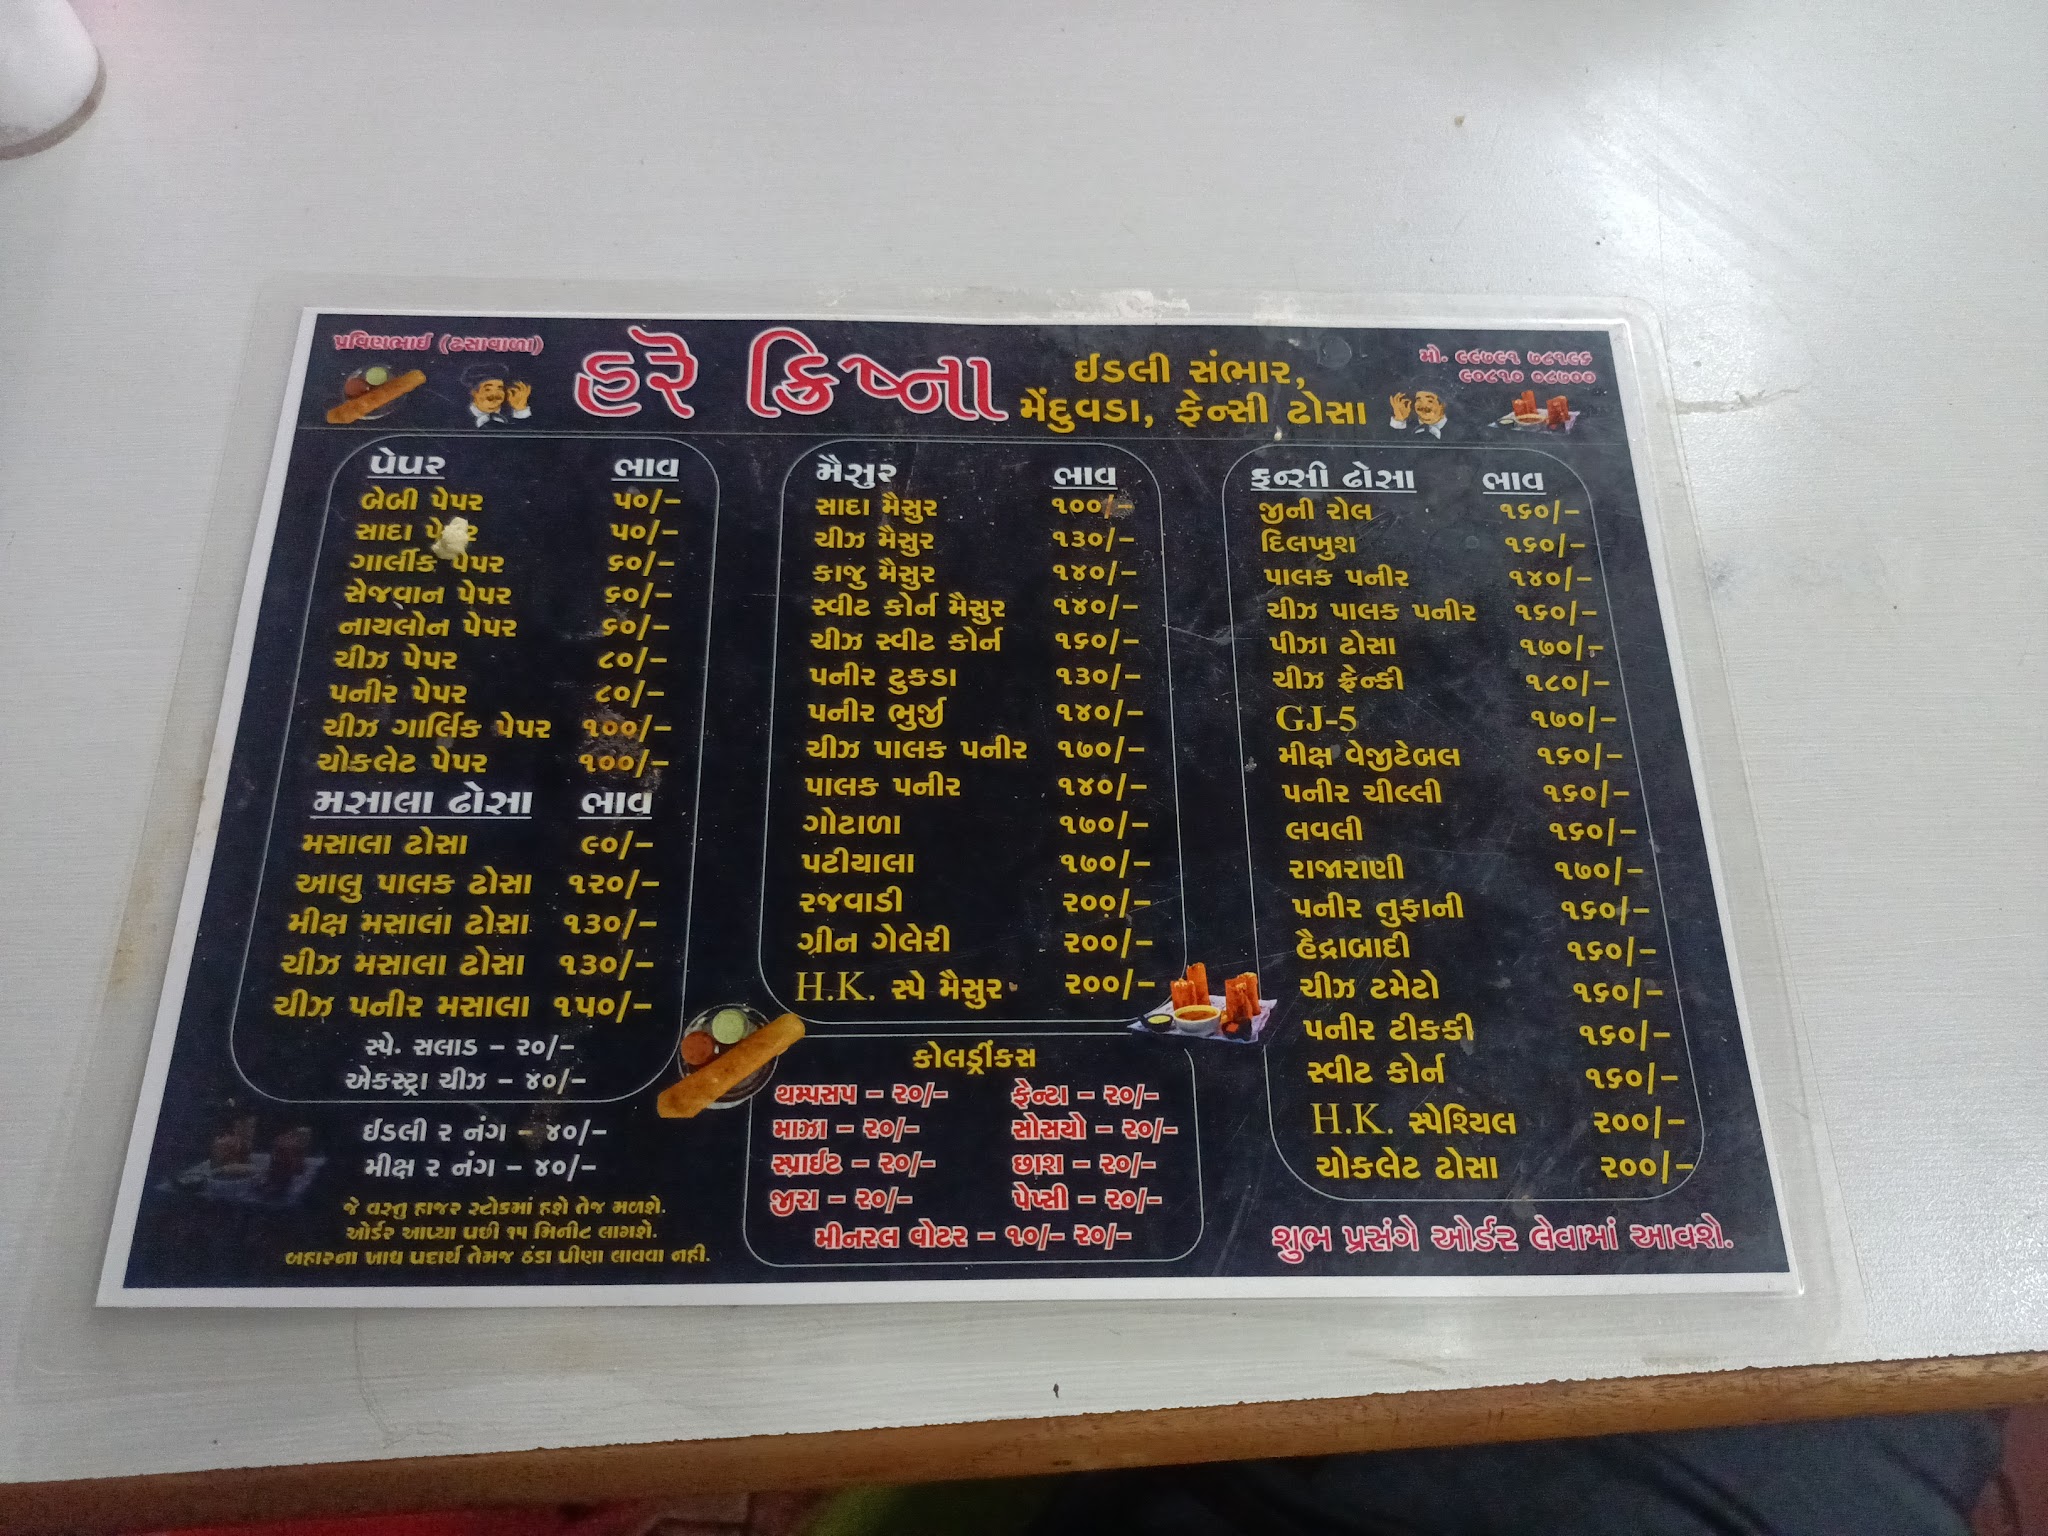 પ્રવિણભાઈ (ટસાવાળા)
હરે ક્રિષ્ના
ઈડલી સંભાર,
મેંદુવડા, ફેન્સી ઢોસા
મો. ૯૯૭૯૧ ૭૮૧૯૬
૯૦૮૧૦ ૦૮૭૦૦
પેપર ભાવ
બેબી પેપર ૫૦/–
સાદા પેપર ૫૦/–
ગાર્લીક પેપર ૬૦/–
સેજવાન પેપર ૬૦/–
નાયલોન પેપર ૬૦/–
ચીઝ પેપર ૮૦/–
પનીર પેપર ૮૦/–
ચીઝ ગાર્લિક પેપર ૧૦૦/–
ચોકલેટ પેપર ૧૦૦/–
મસાલા ઢોસા ભાવ
મસાલા ઢોસા ૯૦/–
આલુ પાલક ઢોસા ૧૨૦/–
મીક્ષ મસાલા ઢોસા ૧૩૦/–
ચીઝ મસાલા ઢોસા ૧૩૦/–
ચીઝ પનીર મસાલા ૧૫૦/–
સ્પે. સલાડ – ૨૦/–
એકસ્ટ્રા ચીઝ – ૪૦/–
ઈડલી ૨ નંગ – ૪૦/–
મીક્ષ ૨ નંગ – ૪૦/–
જે વસ્તુ હાજર સ્ટોકમાં હશે તેજ મળશે.
ઓર્ડર આપ્યા પછી ૧૫ મિનીટ લાગશે.
બહારના ખાધ પદાર્થ તેમજ ઠંડા પીણા લાવવા નહી.
મૈસુર ભાવ
સાદા મૈસુર ૧૦૦/–
ચીઝ મૈસુર ૧૩૦/–
કાજુ મૈસુર ૧૪૦/–
સ્વીટ કોર્ન મૈસુર ૧૪૦/–
ચીઝ સ્વીટ કોર્ન ૧૬૦/–
પનીર ટુકડા ૧૩૦/–
પનીર ભુર્જી ૧૪૦/–
ચીઝ પાલક પનીર ૧૭૦/–
પાલક પનીર ૧૪૦/–
ગોટાળા ૧૭૦/–
પટીયાલા ૧૭૦/–
રજવાડી ૨૦૦/–
ગ્રીન ગેલેરી ૨૦૦/–
H.K. સ્પે મૈસુર ૨૦૦/–
કોલડ્રીંકસ
થમ્પસપ – ૨૦/– ફેન્ટા – ૨૦/–
માઝા – ૨૦/– સોસયો – ૨૦/–
સ્પ્રાઈટ – ૨૦/– છાશ – ૨૦/–
જીરા – ૨૦/– પેપ્સી – ૨૦/–
મીનરલ વોટર – ૧૦/– ૨૦/–
ફન્સી ઢોસા ભાવ
જીની રોલ ૧૬૦/–
દિલખુશ ૧૬૦/–
પાલક પનીર ૧૪૦/–
ચીઝ પાલક પનીર ૧૬૦/–
પીઝા ઢોસા ૧૭૦/–
ચીઝ ફ્રેન્કી ૧૮૦/–
GJ-5 ૧૭૦/–
મીક્ષ વેજીટેબલ ૧૬૦/–
પનીર ચીલ્લી ૧૬૦/–
લવલી ૧૬૦/–
રાજારાણી ૧૭૦/–
પનીર તુફાની ૧૬૦/–
હૈદ્રાબાદી ૧૬૦/–
ચીઝ ટમેટો ૧૬૦/–
પનીર ટીકકી ૧૬૦/–
સ્વીટ કોર્ન ૧૬૦/–
H.K. સ્પેશ્યિલ ૨૦૦/–
ચોકલેટ ઢોસા ૨૦૦/–
શુભ પ્રસંગે ઓર્ડર લેવામાં આવશે.